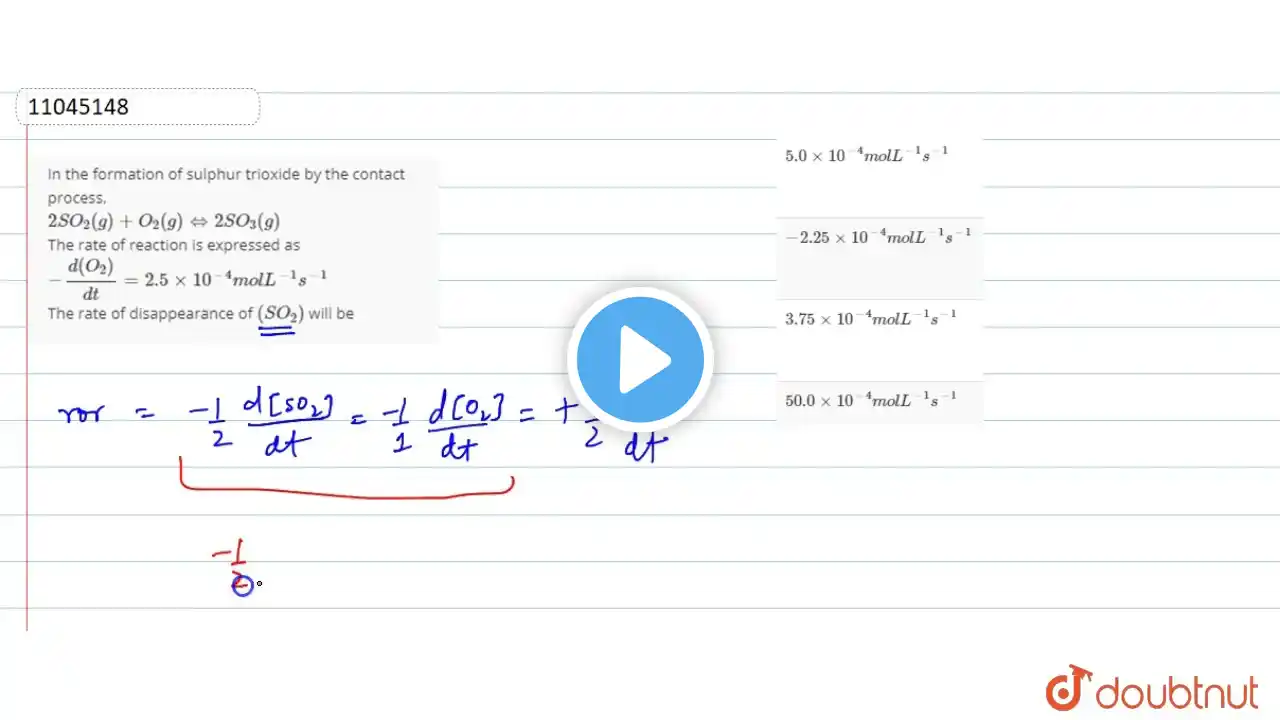 11045148
In the formation of sulphur trioxide by the contact
process,
2SO₂(g) + O₂(g) ⇔ 2SO₃(g)
The rate of reaction is expressed as
−d(O₂)/dt = 2.5 × 10⁻⁴molL⁻¹s⁻¹
The rate of disappearance of (SO₂) will be
5.0 × 10⁻⁴molL⁻¹s⁻¹
−2.25 × 10⁻⁴molL⁻¹s⁻¹
3.75 × 10⁻⁴molL⁻¹s⁻¹
50.0 × 10⁻⁴molL⁻¹s⁻¹
ror = -1/2 d[SO₂]/dt = -1/1 d[O₂]/dt = + /2 /dt
-1/2
doubtnut